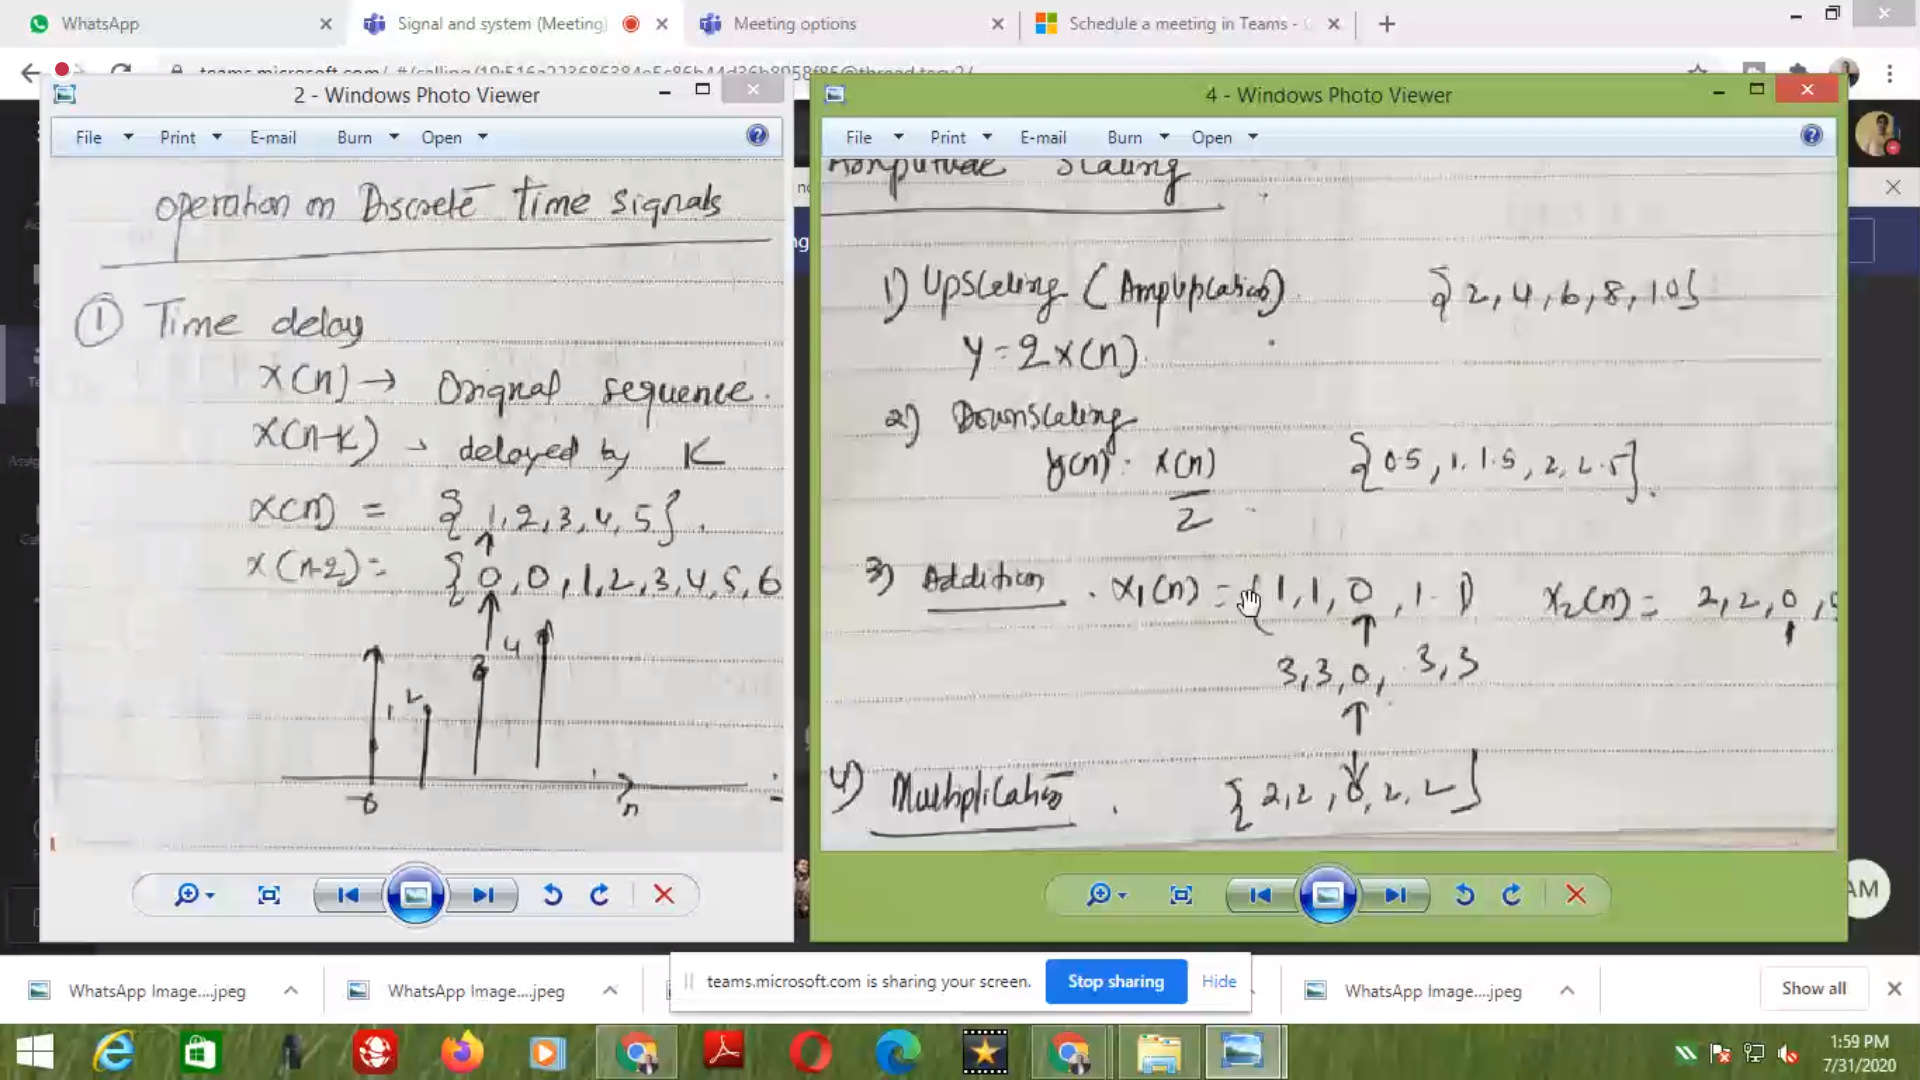 WhatsApp
Signal and system (Meeting)
Meeting options
Schedule a meeting in Teams -
2 - Windows Photo Viewer
File Print E-mail Burn Open
operation on Discrete Time signals
① Time delay
x(n) → Original sequence.
x(n-k) → delayed by K
x(n) = { 1, 2, 3, 4, 5 } .
↑
x(n-2) = { 0, 0, 1, 2, 3, 4, 5, 6
↑
1 2 3 4
0 n
4 - Windows Photo Viewer
File Print E-mail Burn Open
Scaling
1) Upscaling (Amplification) { 2, 4, 6, 8, 10 }
y = 2x(n).
2) Downscaling
y(n) = x(n) { 0.5, 1, 1.5, 2, 2.5 }.
2
3) Addition . x₁(n) = { 1, 1, 0, 1. 1 } x₂(n) = 2, 2, 0,
↑
3, 3, 0, 3, 3
↑
4) Multiplication . { 2, 2, 0, 2, 2 }
AM
WhatsApp Image....jpeg
WhatsApp Image....jpeg
teams.microsoft.com is sharing your screen. Stop sharing Hide
WhatsApp Image....jpeg
Show all
1:59 PM
7/31/2020